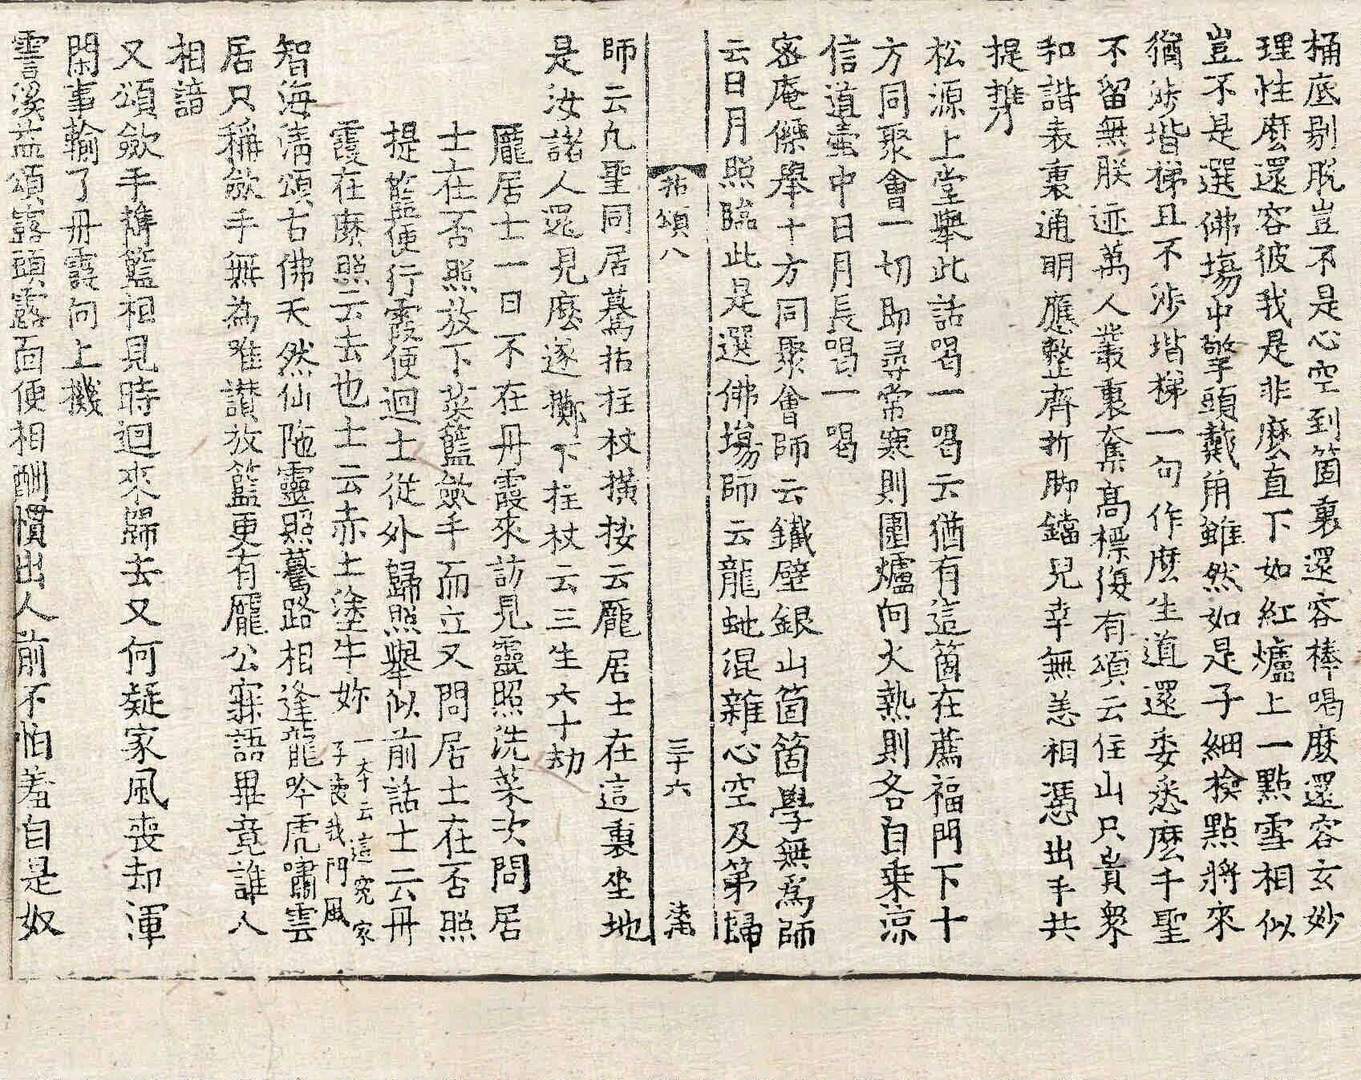 桶底剔脫豈不是心空到箇裏還容棒喝麼還容玄妙
理性麼還容彼我是非麼直下如紅爐上一點雪相似
豈不是選佛場中擎頭戴角雖然如是子細檢點將來
猶涉堦梯且不涉堦梯一句作麼生道還委悉麼千聖
不留無朕迹萬人叢裏奪高標復有頌云住山只貴衆
和諧表裏通明應整齊折脚鐺兒幸無恙相憑出手共
提携
松源上堂舉此話喝一喝云猶有這箇在薦福門下十
方同聚會一切即尋常寒則圍爐向火熱則各自乗凉
信道壷中日月長喝一喝
密庵傑舉十方同聚會師云鐵壁銀山箇箇學無為師
云日月照臨此是選佛場師云龍虵混雜心空及第歸
拈頌八 三十六
師云凡聖同居驀拈拄杖橫按云龐居士在這裏坐地
是汝諸人還見麼遂擲下拄杖云三生六十劫
龐居士一日不在丹霞來訪見靈照洗菜次問居
士在否照放下菜籃斂手而立又問居士在否照
提籃便行霞便迴士從外歸照舉似前話士云丹
霞在麼照云去也士云赤土塗牛妳 一本云這冤家子喪我門風
智海清頌古佛天然仙陁靈照驀路相逢龍吟虎嘯雲
居只稱斂手無為唯讃放籃更有龐公寐語畢竟誰人
相諳
又頌斂手攜籃相見時迴來歸去又何疑家風喪却渾
閑事輸了丹霞向上機
雪溪益頌露頭露面便相酬慣出人前不怕羞自是奴